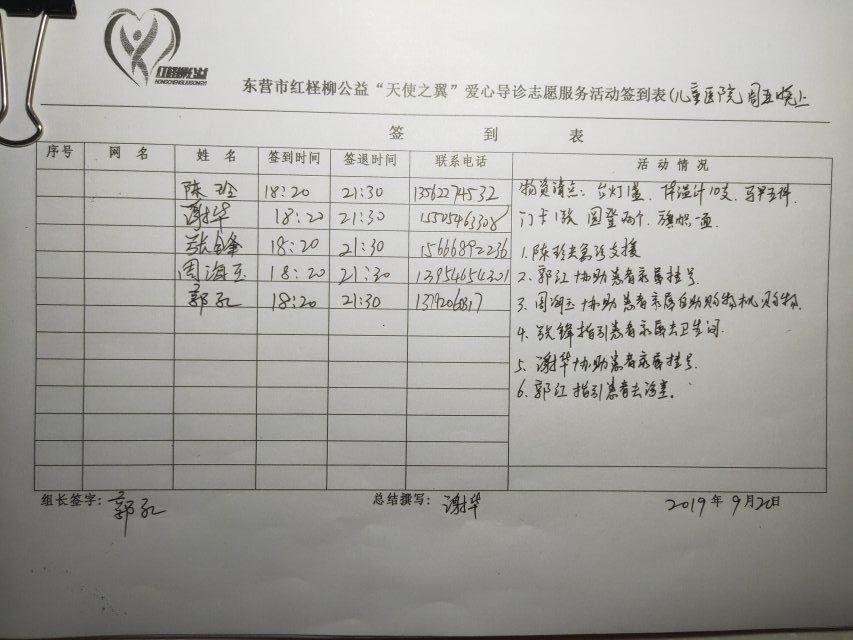 红柽柳公益
HONGCHENGLIUGONGYI
东营市红柽柳公益“天使之翼”爱心导诊志愿服务活动签到表(儿童医院)周五晚上
签 到 表
序号 网 名 姓 名 签到时间 签退时间 联系电话 活 动 情 况
陈玲 18:20 21:30 13562274532 物资清点:台灯1盏,体温计10支,马甲五件.
谢华 18:20 21:30 15505463308 门卡1张 圆凳两个,旗帜一面
张锋 18:20 21:30 15666892236 1.陈玲去急诊支援
周海玉 18:20 21:30 13954654301 2.郭江协助患者家属挂号
郭江 18:20 21:30 3.周海玉协助患者家属自助购物机购物.
4.张锋指引患者家属去卫生间.
5.谢华协助患者家属挂号.
6.郭江指引患者去诊室。
组长签字:郭江 总结撰写:谢华 2019年9月20日